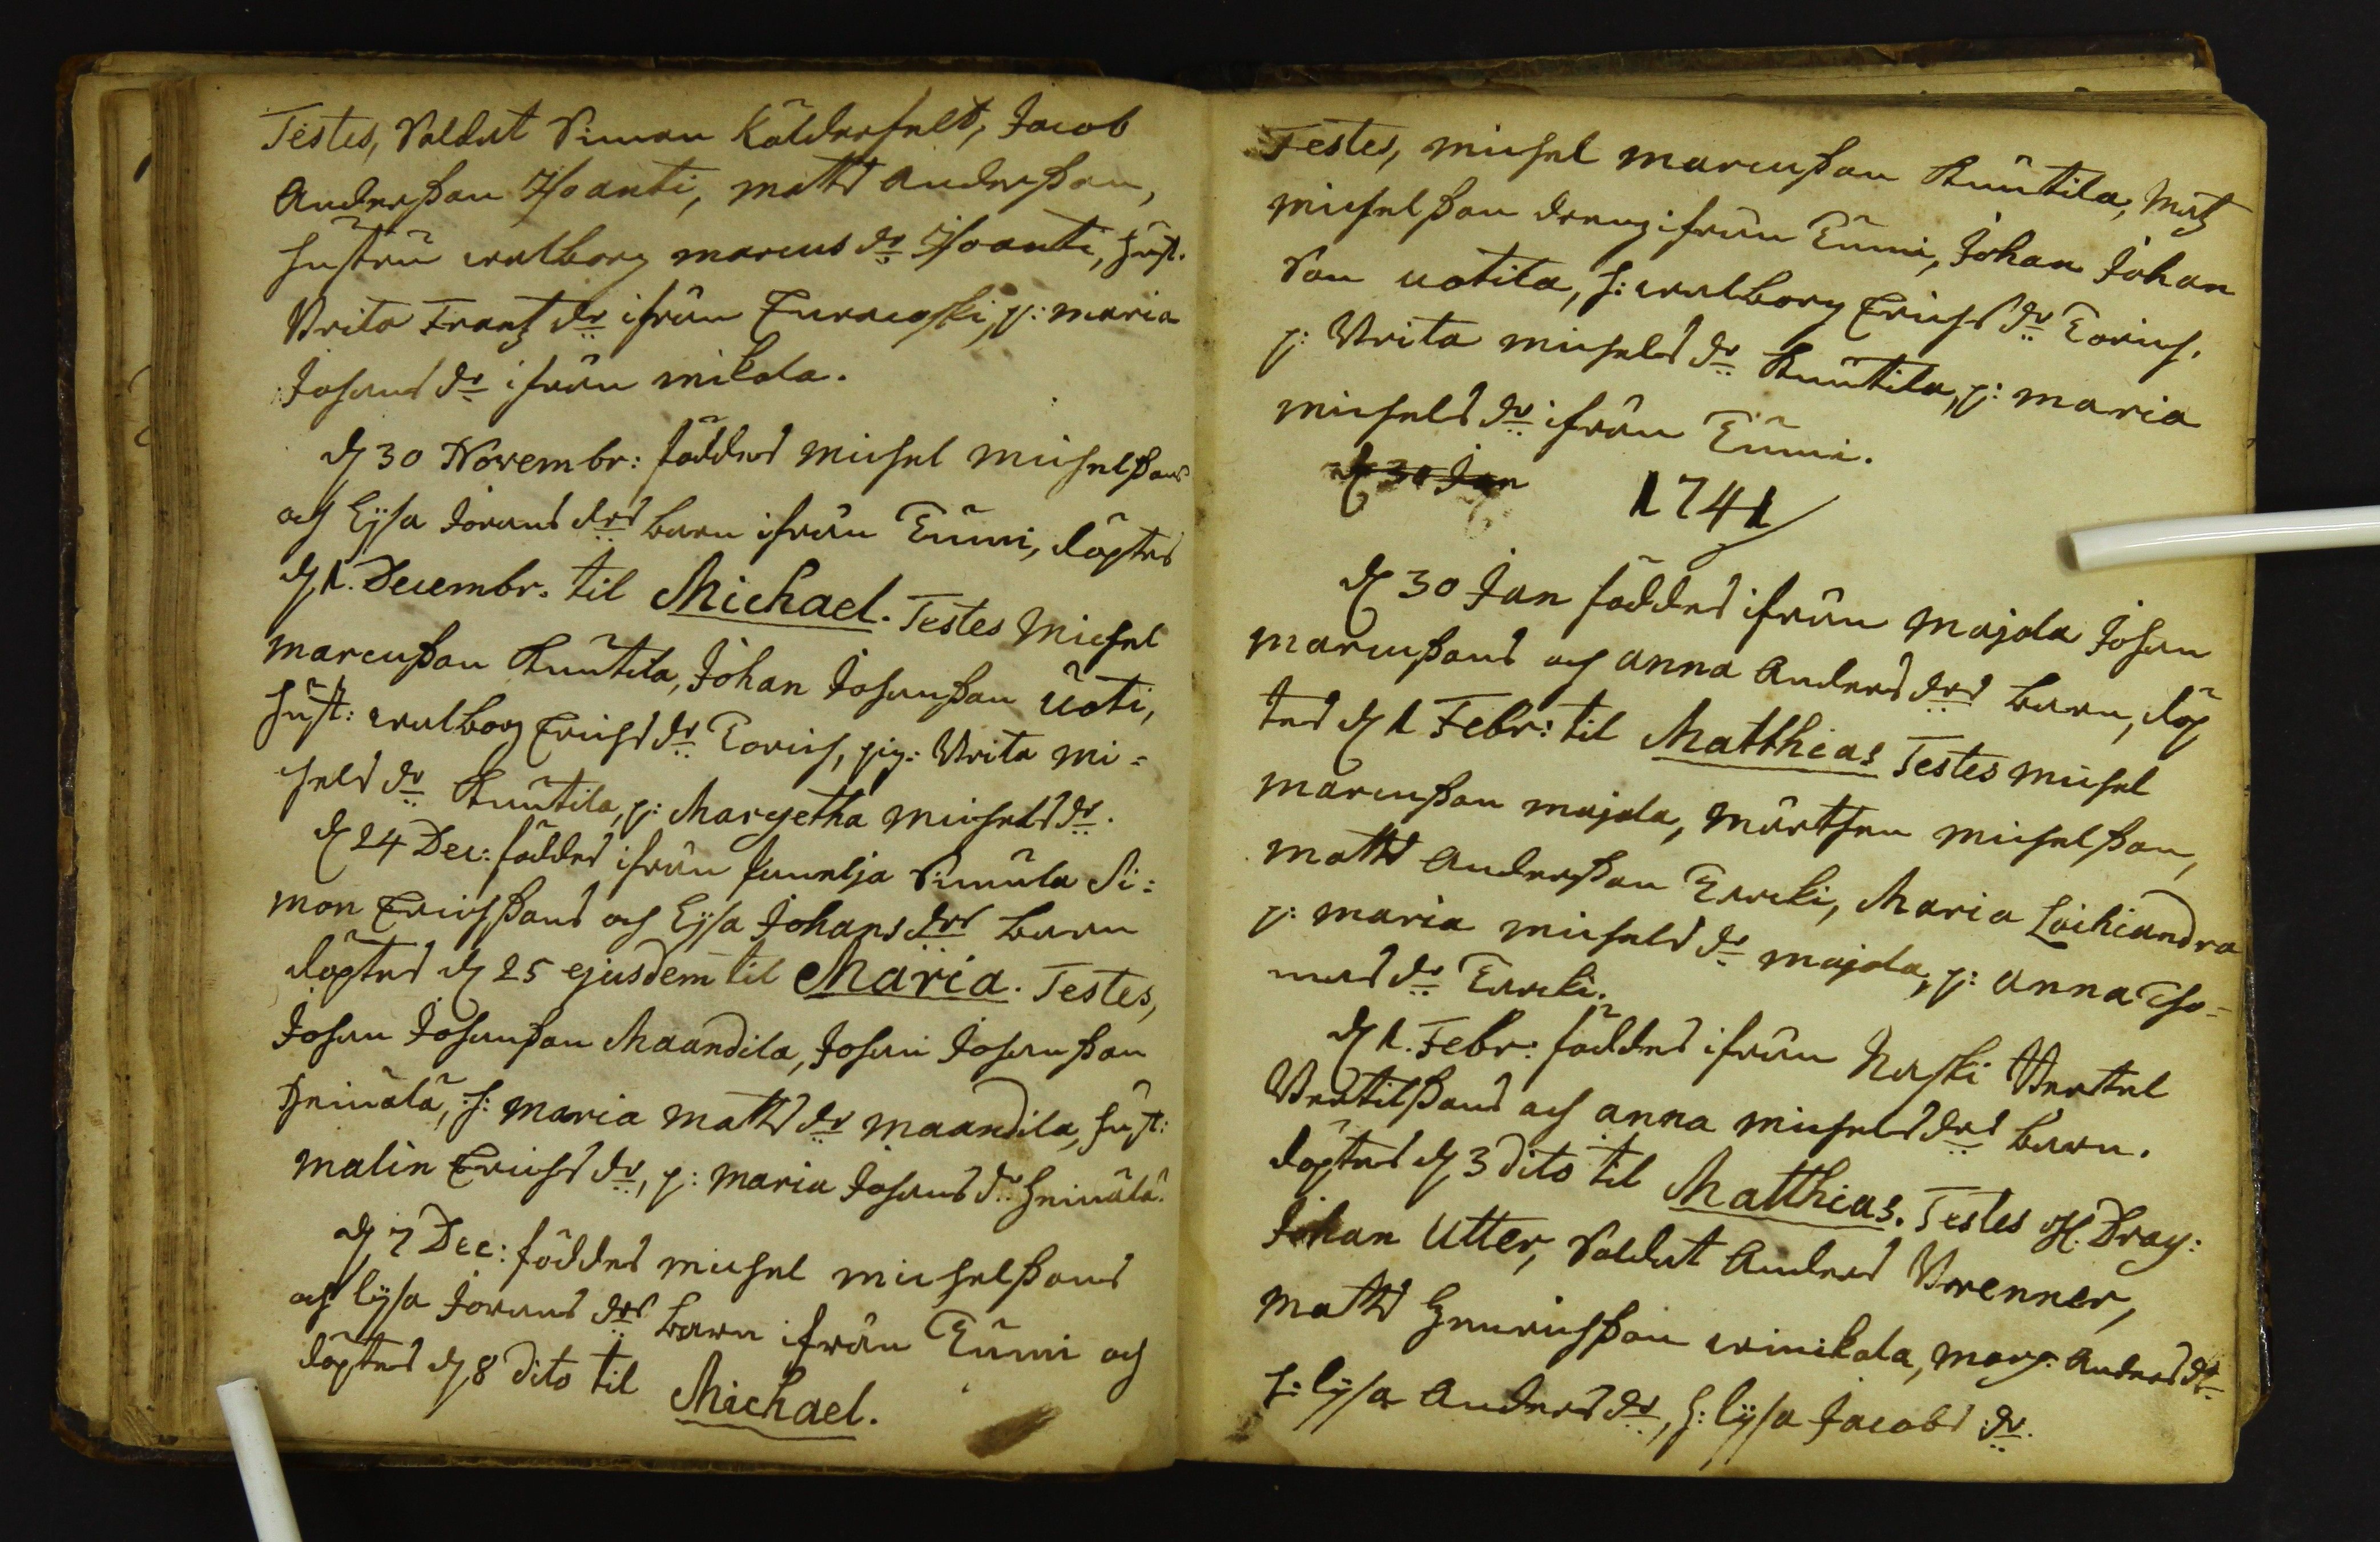 Testes, Soldat Simon Källderfelt, Jacob
Anderßon Isoantti, Matts Anderßon,
hustru walborg marcus dr Isoantti, hust.
Brita Frantz dr ifrån Euracoski, p: maria
Johans dr ifrån mikola.
d 30 Novembr: föddes Michel Michelßons
och Lijsa Jörans drs barn ifrån Eünni, döptes
d 1. Decembr. til Michael. Testes Michel
marcußon Kuütila, Johan Johanßon Uoti,
hust: walborg Erichs dr Eorich, pig: Brita Mi=
chels dr Kuütila, p: Margetha Michels dr.
d 24 Dec: föddes ifrån Junnelja Simüla Si=
mon Erichßons och Lijsa Johans drs barn
döptes d 25 ejusdem til Maria. Testes,
Johan Johanßon Maandila, Johan Johanßon
Heinälä, h: maria matts dr maandila, hust:
malin Erichs dr, p: maria Johans dr heinälä.
d 7 Dec: föddes michel michelßons
och lijsa Jörans drs barn ifrån Eünni och
döptes d 8 dito til Michael.
Testes, michel marcußon Kuütila, Matz
michelßon dreng ifrån Eünni, Johan Johan
Son uotila, h: walborg Erichs dr Eorich.
p: Brita michels dr Kuütila, p: maria
michels dr ifrån Eünni.
d 30 Jan 1741
d 30 Jan föddes ifrån majola Johan
marcußons och anna Anders drs barn, döp
tes d 1 Febr: til Matthias Testes michel
marcußon majola, mårthen michelßon,
matts Anderßon Eercki, Maria Loihiandra
p: maria michels dr majola, p: anna Tho=
mas dr Eercki.
d 1. Febr: föddes ifrån Naski Bertel
Bertilßons och anna michels drs barn.
döptes d 3 dito til Matthias. Testes H. Drag:
Johan Utter, Soldat Anders Brenner,
matts Henrichßon winikala, marg: Anders dr
h: lijsa Anders dr, h: lijsa Jacobs dr.